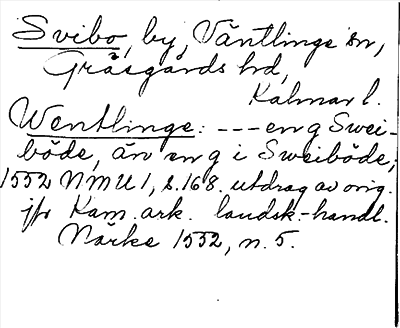 Svibo, by, Väntlinge sn,
Gräsgårds hd,
Kalmar l.
Wentlinge: --- en g Swei-
böde, än en g i Sweiböde,
1552 NMU 1, s. 168. utdrag av orig.
jfr Kam. ark. landsk.-handl.
Närke 1552, n. 5.